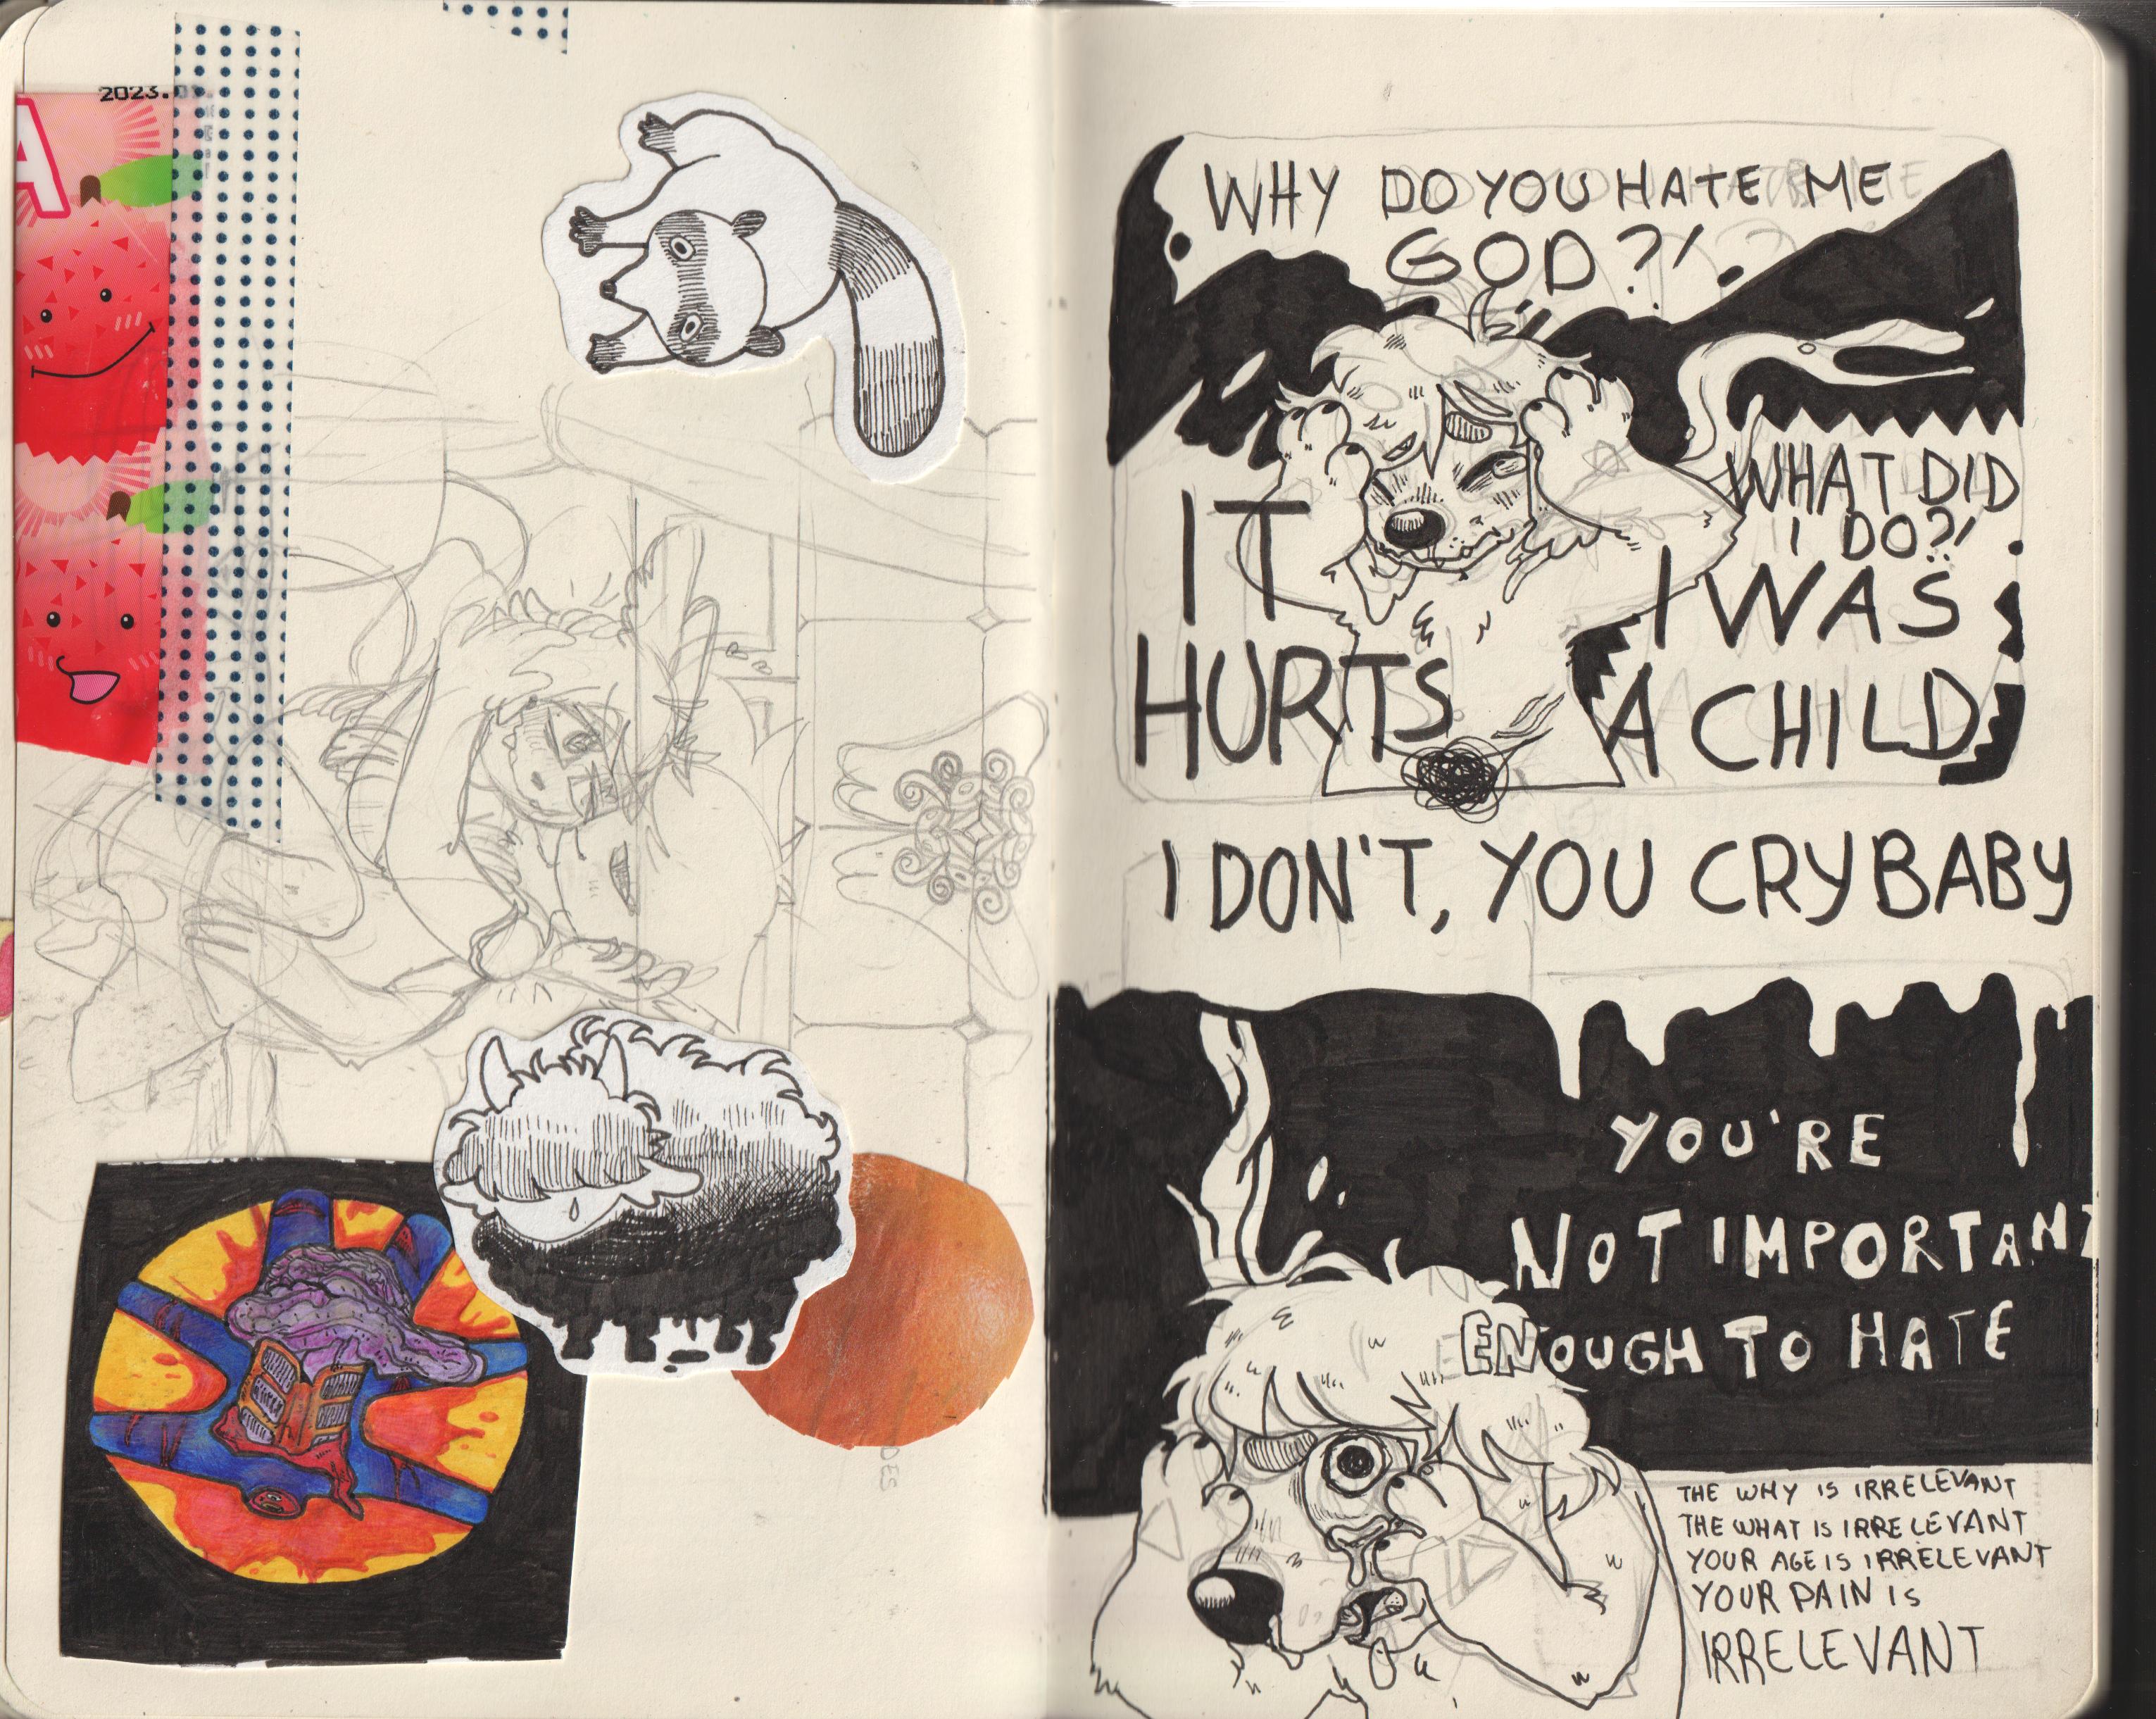 2023.
A
DES
WHY DO YOU HATE ME
GOD?!
WHAT DID
I DO?!
IT
HURTS
I WAS
A CHILD
I DON'T, YOU CRYBABY
YOU'RE
NOT IMPORTANT
ENOUGH TO HATE
THE WHY IS IRRELEVANT
THE WHAT IS IRRELEVANT
YOUR AGE IS IRRELEVANT
YOUR PAIN IS
IRRELEVANT